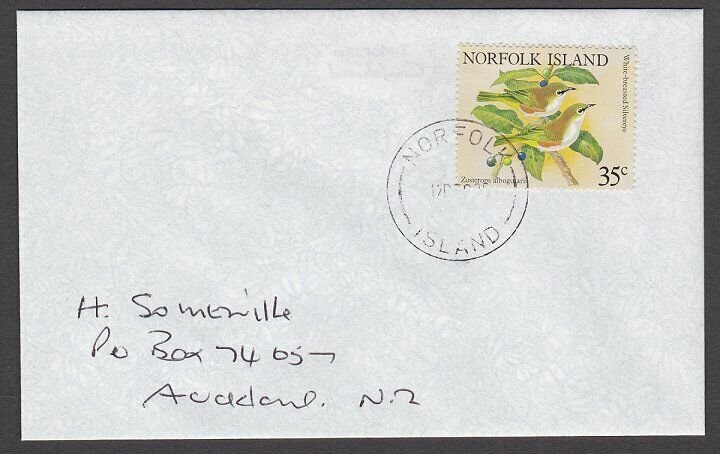 NORFOLK ISLAND
White-breasted Silvereye
Zosterops albogularis
35c
NORFOLK
ISLAND
H. Somerville
Po Box 74057
Auckland. N.Z